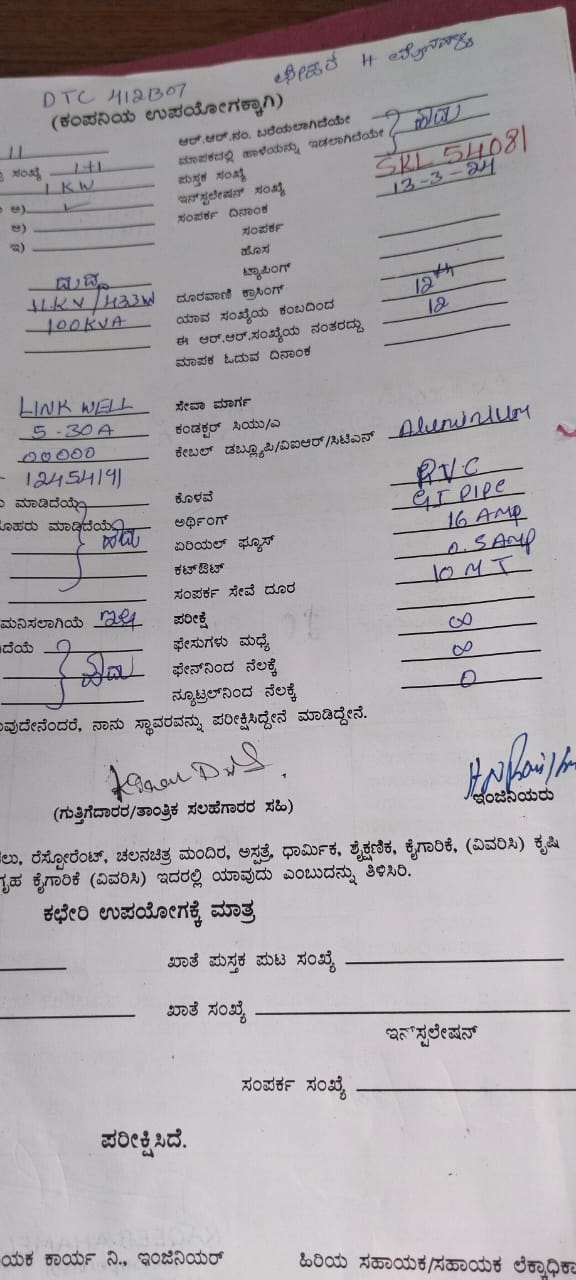 DTC 412B07
(ಕಂಪನಿಯ ಉಪಯೋಗಕ್ಕಾಗಿ)
11 ಆರ್.ಆರ್.ನಂ. ಬರೆಯಲಾಗಿದೆಯೇ
ಸಂಖ್ಯೆ 1+1 ಮಾಪಕದಲ್ಲಿ ಹಾಳೆಯನ್ನು ಇಡಲಾಗಿದೆಯೇ ಹೌದು
1 KW ಪುಸ್ತಕ ಸಂಖ್ಯೆ
ಅ) ✓ ಇನ್‌ಸ್ಟಲೇಷನ್ ಸಂಖ್ಯೆ SRL 54081
ಆ) ಸಂಪರ್ಕ ದಿನಾಂಕ 13-3-24
ಇ) ಸಂಪರ್ಕ
ಹೊಸ
ಟ್ಯಾಪಿಂಗ್
11KV/433W ದೂರವಾಣಿ ಕ್ರಾಸಿಂಗ್
100KVA ಯಾವ ಸಂಖ್ಯೆಯ ಕಂಬದಿಂದ 12th
ಈ ಆರ್.ಆರ್.ಸಂಖ್ಯೆಯ ನಂತರದ್ದು 12
ಮಾಪಕ ಓದುವ ದಿನಾಂಕ
LINK WELL ಸೇವಾ ಮಾರ್ಗ
5-30A ಕಂಡಕ್ಟರ್ ಸಿಯು/ಎ
00000 ಕೇಬಲ್ ಡಬ್ಲ್ಯೂಪಿ/ವಿಐಆರ್/ಸಿಟಿಎನ್ Aluminium
12454191
ಮಾಡಿದೆಯೆ ಕೊಳವೆ PVC
ಮಾಡಿದೆಯೆ ಹೌದು ಅರ್ಥಿಂಗ್ GI PIPE
ಏರಿಯಲ್ ಫ್ಯೂಸ್ 16 AMP
ಕಟ್‌ಔಟ್ 0.5 AMP
ಸಂಪರ್ಕ ಸೇವೆ ದೂರ 10 MT
ಮನಿಸಲಾಗಿಯೆ ಇಲ್ಲ ಪರೀಕ್ಷೆ
ದೆಯೆ ಫೇಸುಗಳು ಮಧ್ಯೆ ∞
ಹೌದು ಫೇಸ್‌ನಿಂದ ನೆಲಕ್ಕೆ ∞
ನ್ಯೂಟ್ರಲ್‌ನಿಂದ ನೆಲಕ್ಕೆ 0
ವುದೇನೆಂದರೆ, ನಾನು ಸ್ಥಾವರವನ್ನು ಪರೀಕ್ಷಿಸಿದ್ದೇನೆ ಮಾಡಿದ್ದೇನೆ.
(ಗುತ್ತಿಗೆದಾರರ/ತಾಂತ್ರಿಕ ಸಲಹೆಗಾರರ ಸಹಿ) ಇಂಜಿನಿಯರು
ಲು, ರೆಸ್ಟೋರೆಂಟ್, ಚಲನಚಿತ್ರ ಮಂದಿರ, ಅಸ್ಪತ್ರೆ, ಧಾರ್ಮಿಕ, ಶೈಕ್ಷಣಿಕ, ಕೈಗಾರಿಕೆ, (ವಿವರಿಸಿ) ಕೃಷಿ
ಗೃಹ ಕೈಗಾರಿಕೆ (ವಿವರಿಸಿ) ಇದರಲ್ಲಿ ಯಾವುದು ಎಂಬುದನ್ನು ತಿಳಿಸಿರಿ.
ಕಛೇರಿ ಉಪಯೋಗಕ್ಕೆ ಮಾತ್ರ
ಖಾತೆ ಪುಸ್ತಕ ಪುಟ ಸಂಖ್ಯೆ
ಖಾತೆ ಸಂಖ್ಯೆ
ಇನ್‌ಸ್ಪಲೇಷನ್
ಸಂಪರ್ಕ ಸಂಖ್ಯೆ
ಪರೀಕ್ಷಿಸಿದೆ.
ಯಕ ಕಾರ್ಯ ನಿ., ಇಂಜಿನಿಯರ್ ಹಿರಿಯ ಸಹಾಯಕ/ಸಹಾಯಕ ಲೆಕ್ಕಾಧಿಕಾ